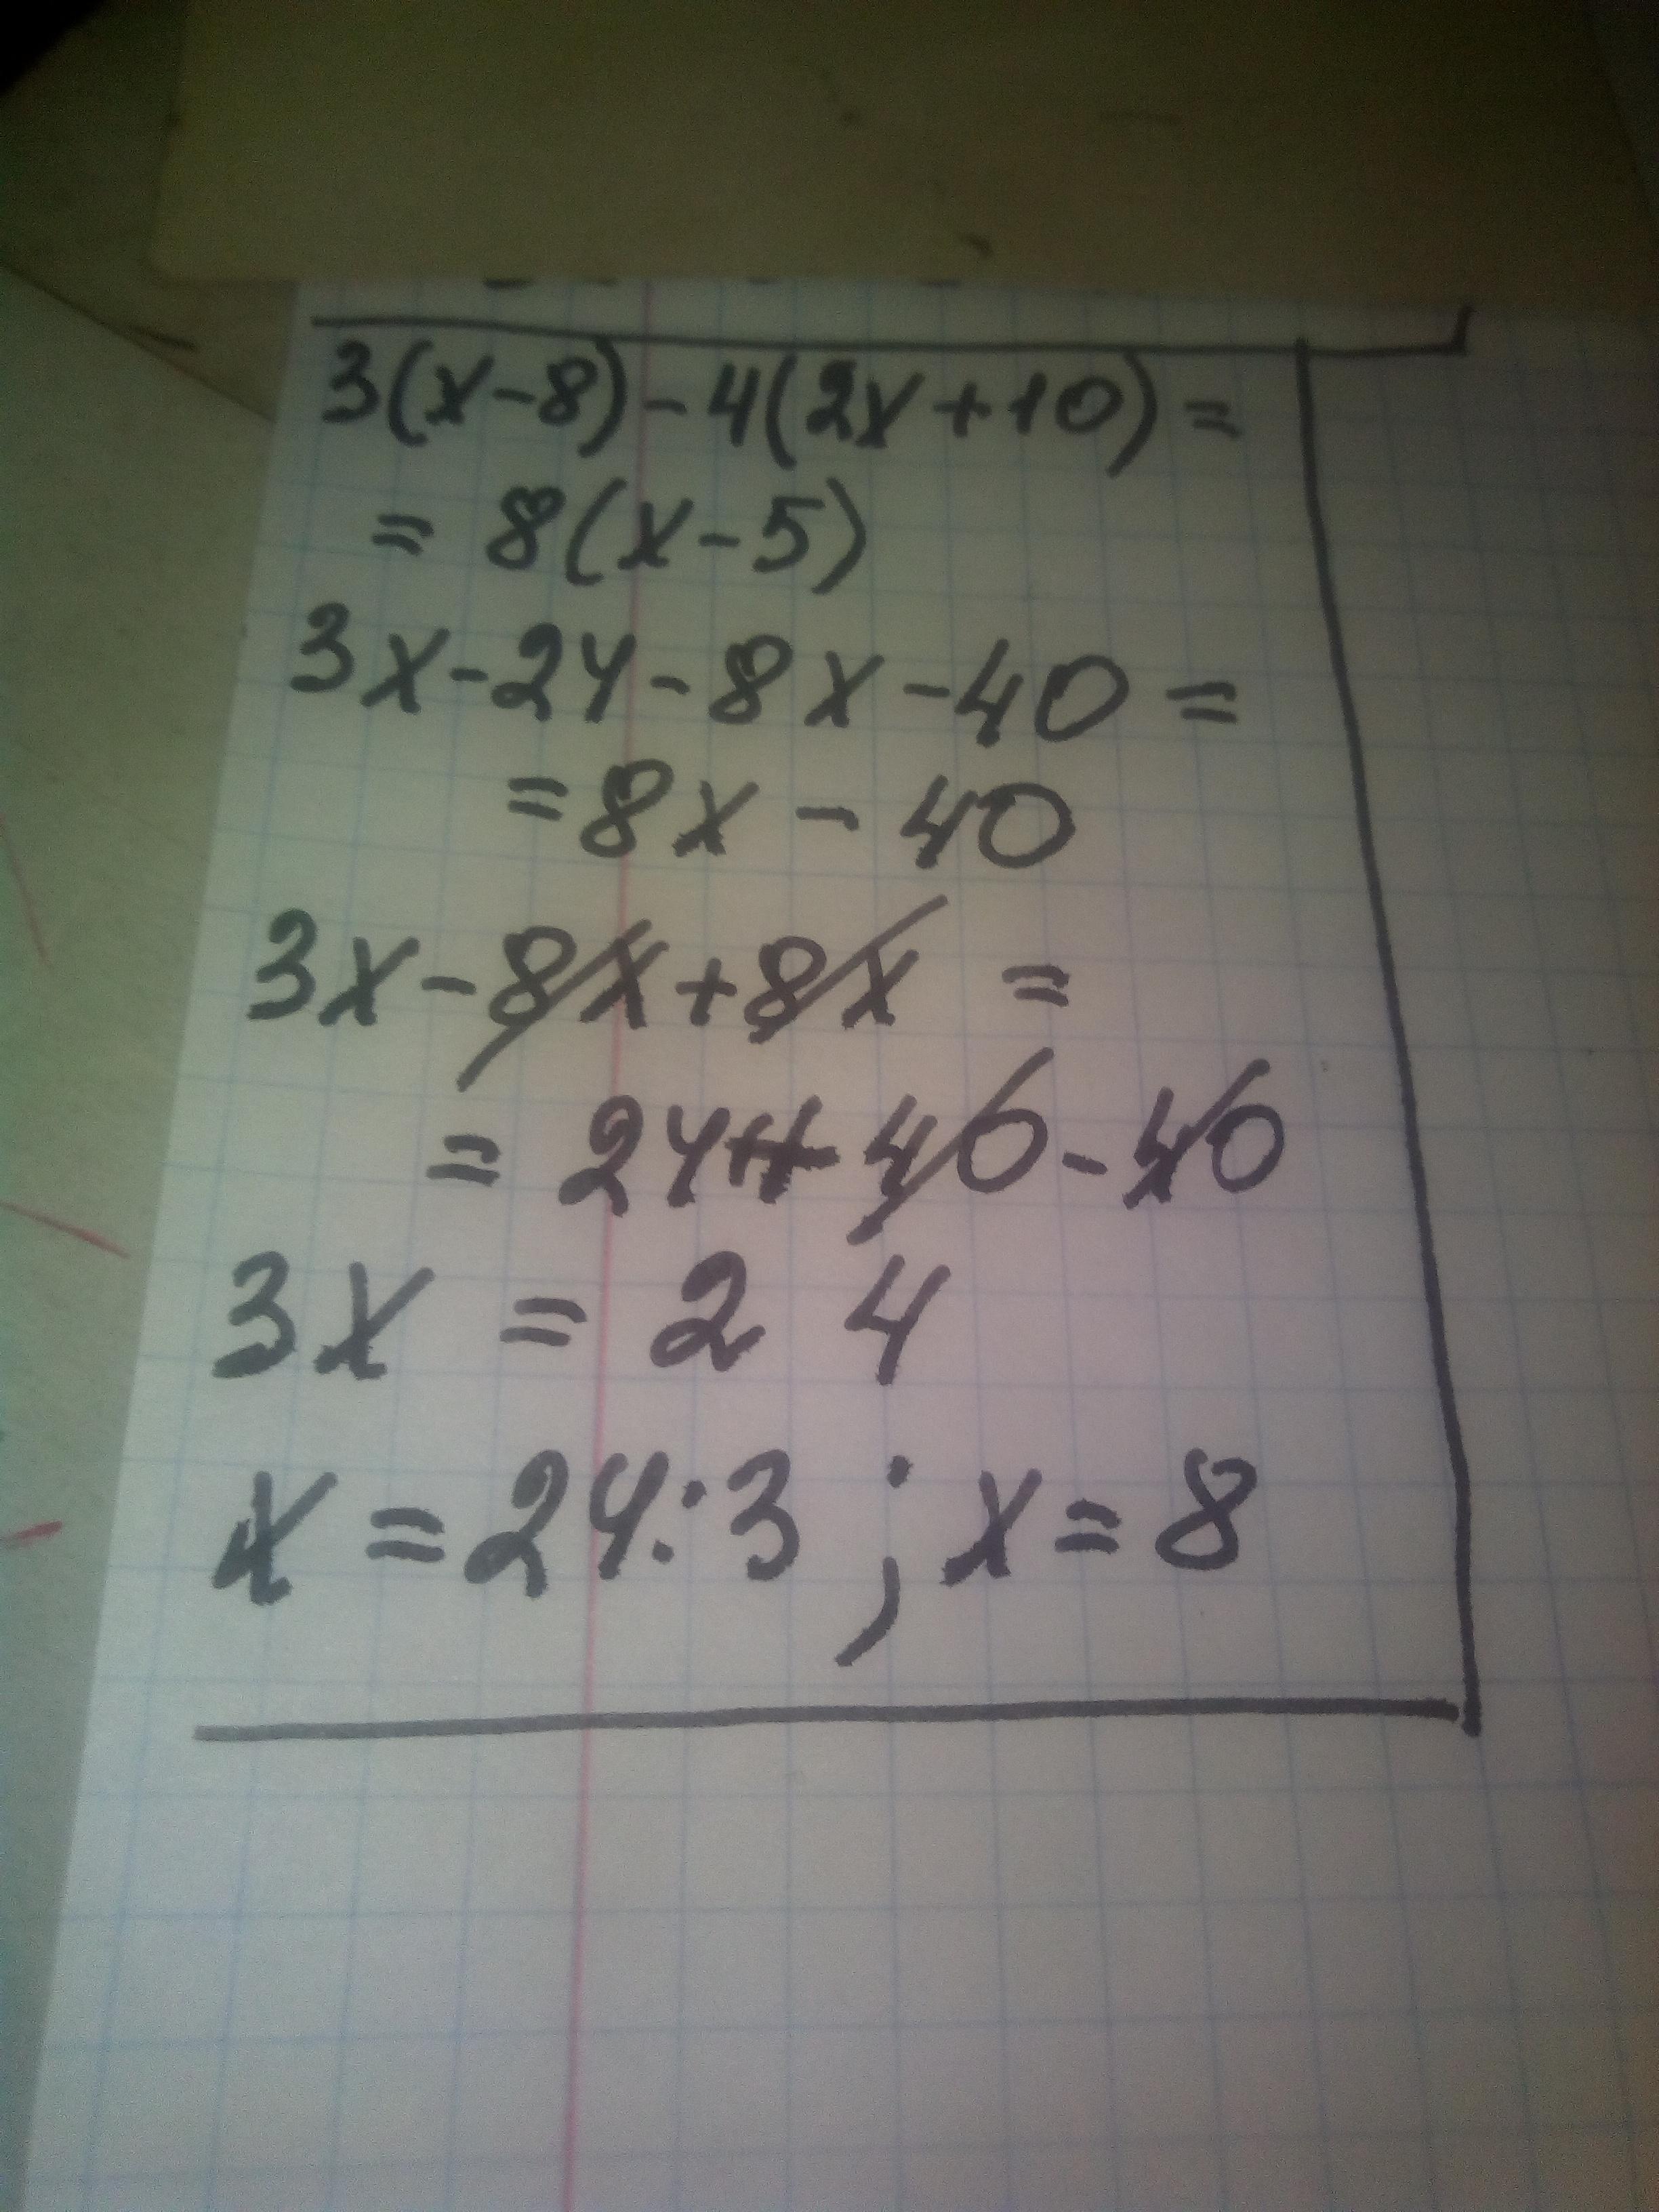 3(x-8)-4(2x+10)=
=8(x-5)
3x-24-8x-40=
=8x-40
3x-8x+8x=
=24+40-40
3x=24
x=24:3; x=8